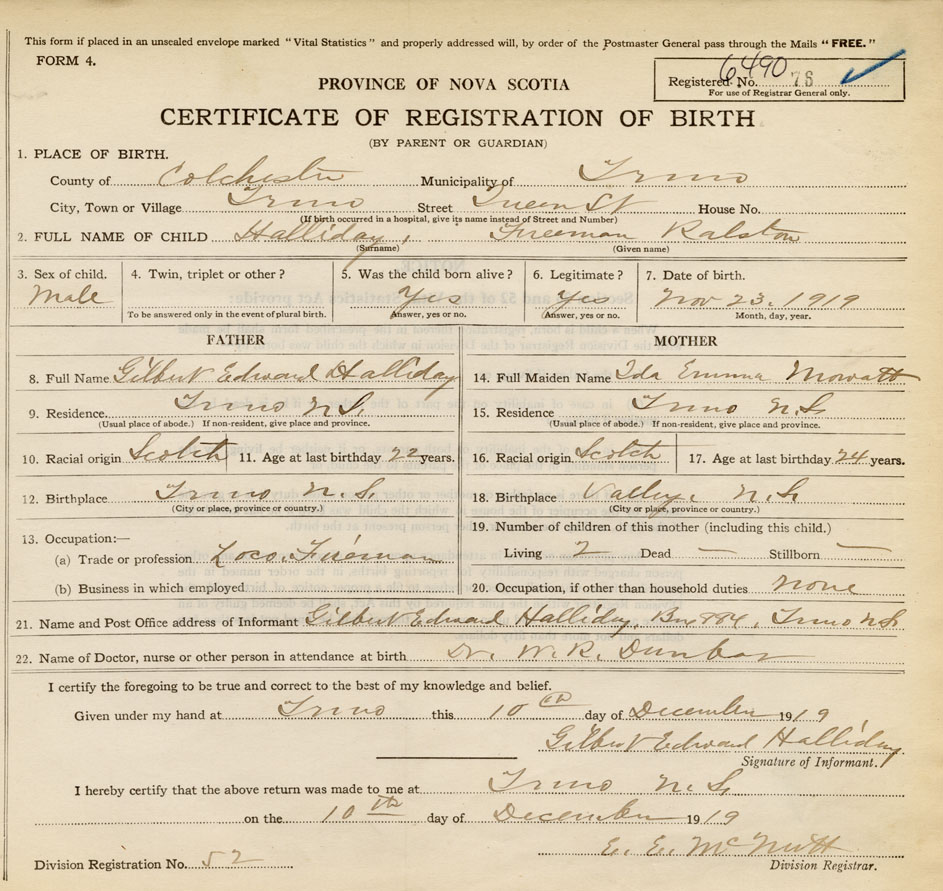 This form if placed in an unsealed envelope marked "Vital Statistics" and properly addressed will, by order of the Postmaster General pass through the Mails "FREE."
FORM 4.
6490
Registered No. 76
For use of Registrar General only.
PROVINCE OF NOVA SCOTIA
CERTIFICATE OF REGISTRATION OF BIRTH
(BY PARENT OR GUARDIAN)
1. PLACE OF BIRTH.
County of Colchester Municipality of Truro
City, Town or Village Truro Street Queen St House No.
(If birth occurred in a hospital, give its name instead of Street and Number)
2. FULL NAME OF CHILD Halliday, Freeman Ralston
(Surname) (Given name)
3. Sex of child. 4. Twin, triplet or other? 5. Was the child born alive? 6. Legitimate? 7. Date of birth.
Male Yes Yes Nov 23. 1919
To be answered only in the event of plural birth. Answer, yes or no. Answer, yes or no. Month, day, year.
FATHER MOTHER
8. Full Name Gilbert Edward Halliday 14. Full Maiden Name Ida Emma Mowatt
9. Residence Truro N.S. 15. Residence Truro N.S.
(Usual place of abode.) If non-resident, give place and province. (Usual place of abode.) If non-resident, give place and province.
10. Racial origin Scotch 11. Age at last birthday 22 years. 16. Racial origin Scotch 17. Age at last birthday 24 years.
12. Birthplace Truro N.S. 18. Birthplace Valley, N.S.
(City or place, province or country.) (City or place, province or country.)
19. Number of children of this mother (including this child.)
13. Occupation:—
(a) Trade or profession Loco. Fireman Living 2 Dead — Stillborn —
(b) Business in which employed 20. Occupation, if other than household duties none
21. Name and Post Office address of Informant Gilbert Edward Halliday, Box 884, Truro N.S.
22. Name of Doctor, nurse or other person in attendance at birth Dr. W. R. Dunbar
I certify the foregoing to be true and correct to the best of my knowledge and belief.
Given under my hand at Truro this 10th day of December 1919
Gilbert Edward Halliday.
Signature of Informant.
I hereby certify that the above return was made to me at Truro N.S.
on the 10th day of December 1919
E. E. McNutt
Division Registration No. 52 Division Registrar.